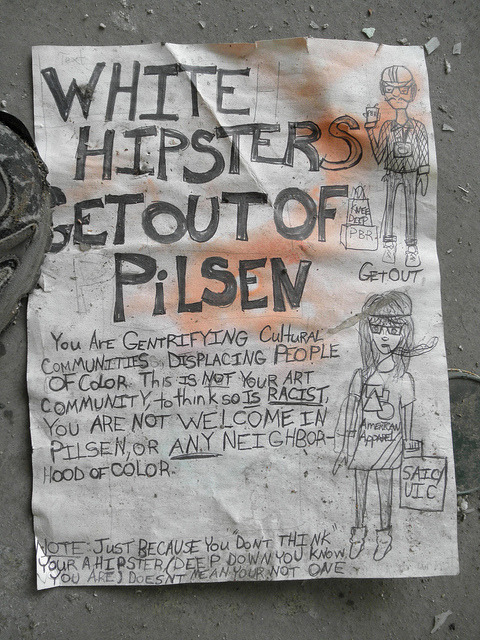 WHITE
HIPSTERS
GET OUT OF
PiLSEN
KNEE
DEEP
PBR
GET OUT
You Are GENTRIFYING Cultural
COMMUNITIES DISPLACING PEOPLE
OF COLOR. This IS NOT YOUR ART
COMMUNITY, to think so IS RACIST.
YOU ARE NOT WELCOME IN
PILSEN, OR ANY NEIGHBOR-
HOOD OF COLOR.
AMERICAN
Apparel
SAIC/
UIC
NOTE: JUST BECAUSE YOU "DONT THINK"
YOUR A HIPSTER, (DEEP DOWN YOU KNOW
YOU ARE) DOESNT MEAN YOUR NOT ONE.